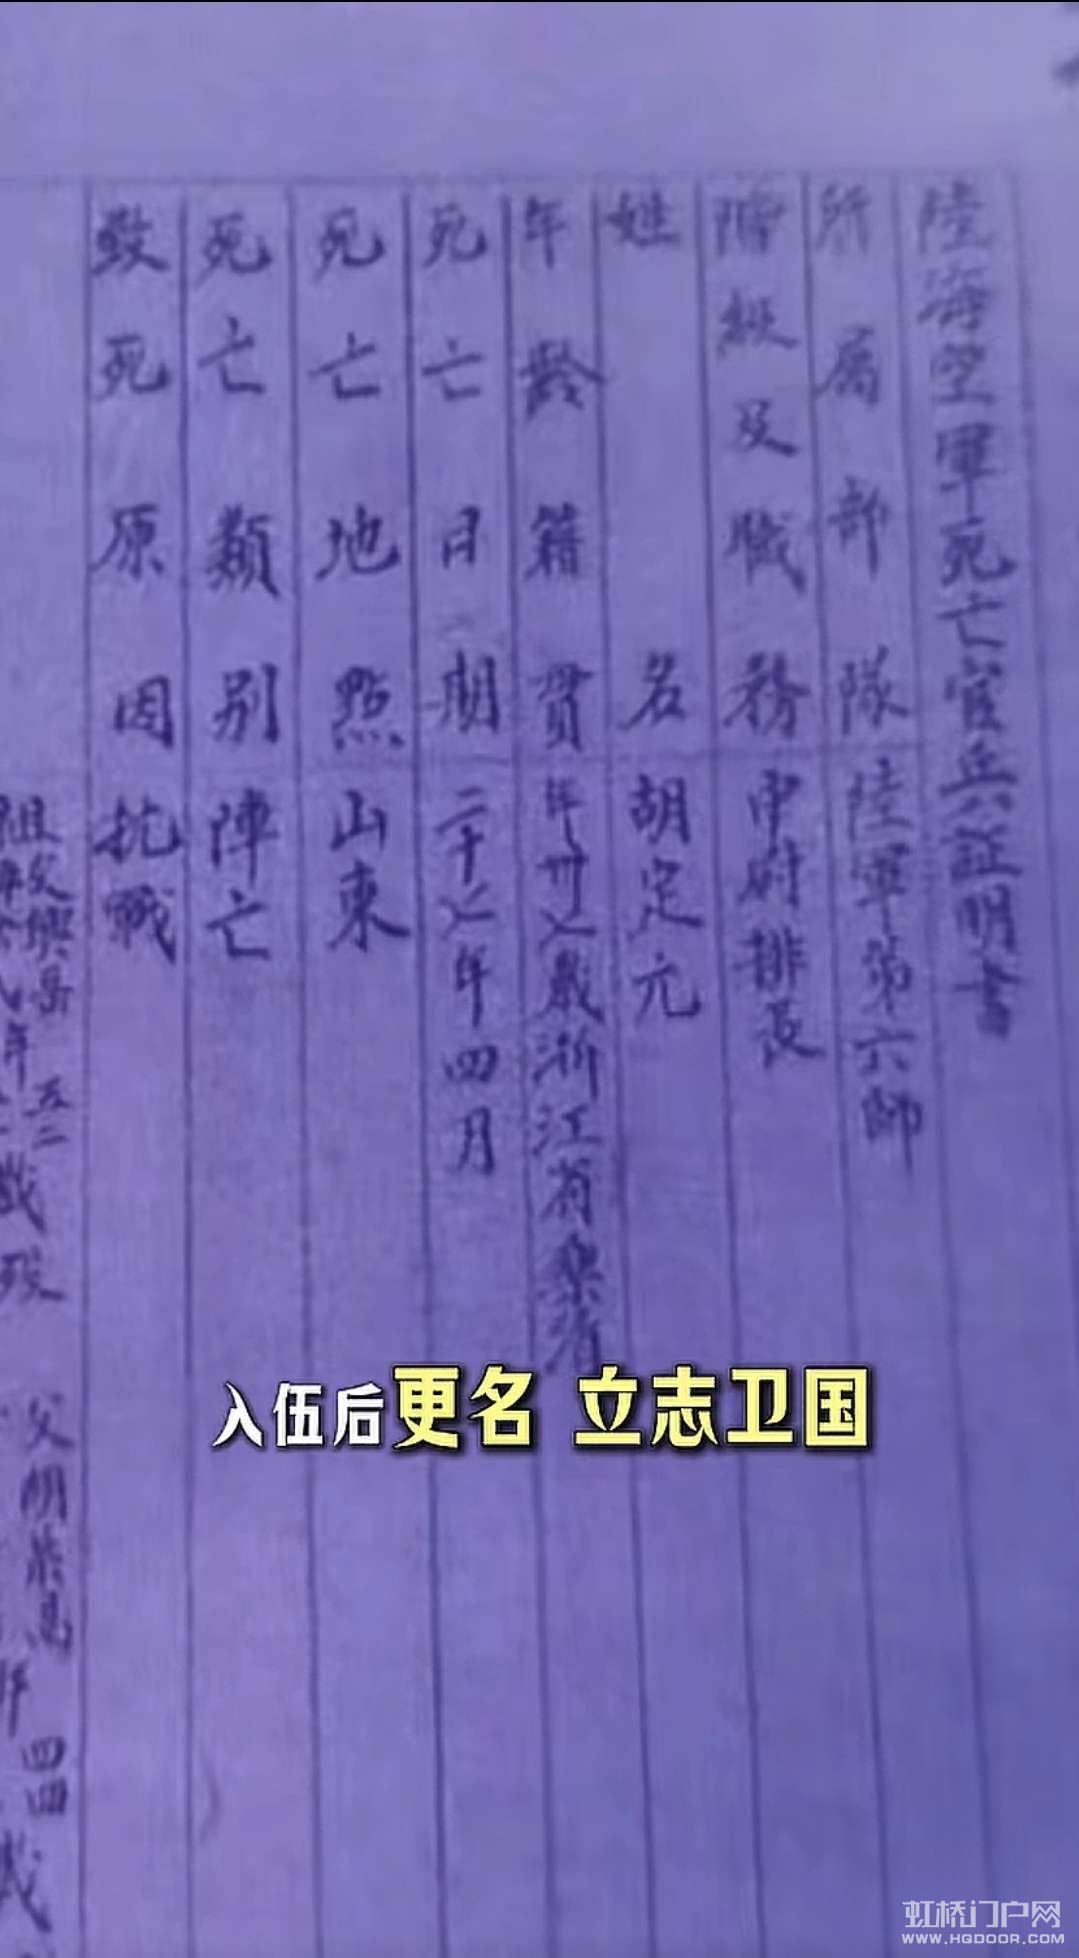 陸海空軍死亡官兵証明書
所屬部隊 陸軍第六師
階級及職務 中尉排長
姓名 胡定元
年齡籍貫 年卅七歲浙江省樂清
死亡日期 二十七年四月
死亡地點 山東
死亡類别 陣亡
致死原因 抗戰
祖父 岳 五二
父胡 四四
年 歲 歿
入伍后更名 立志卫国
虹桥门户网
WWW.HQDOOR.COM